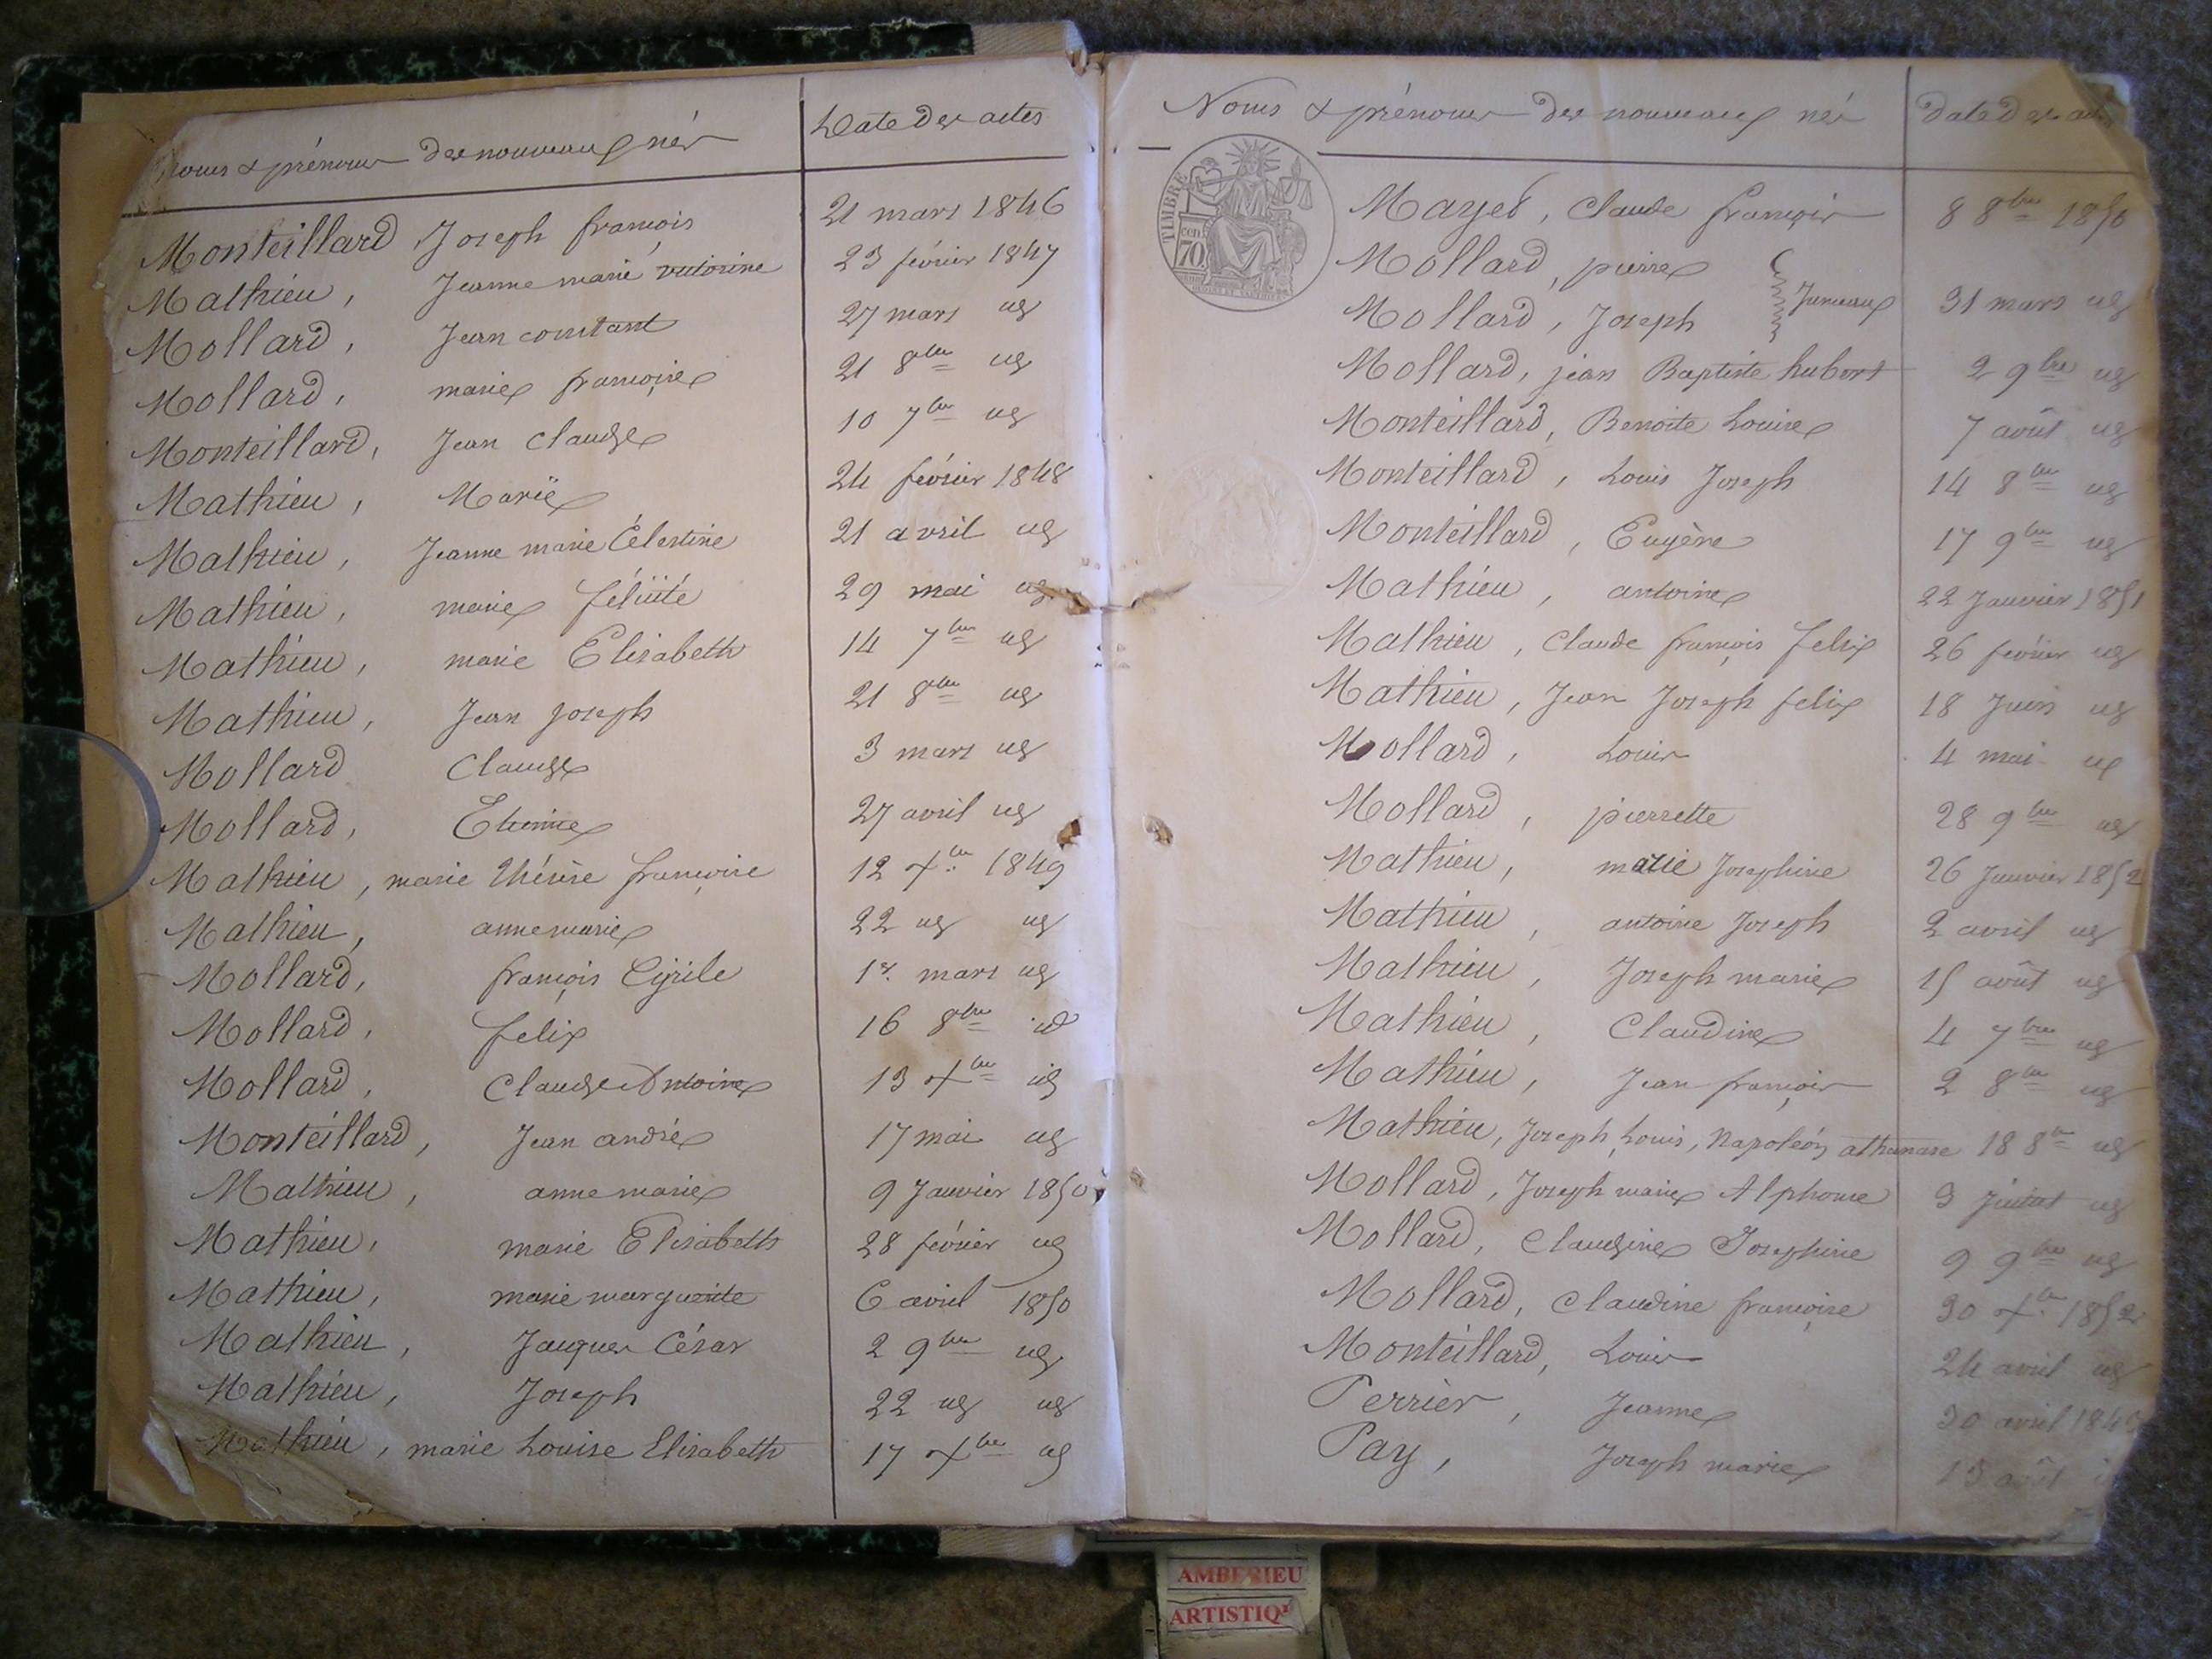 Noms & prénoms des nouveaux nés Date des actes
Monteillard Joseph françois 21 mars 1846
Mathieu, Jeanne marie victorine 23 février 1847
Mollard, Jean constant 27 mars id
Mollard, marie françoise 21 8bre id
Monteillard, Jean Claude 10 7bre id
Mathieu, Marie 24 février 1848
Mathieu, Jeanne marie Célestine 21 avril id
Mathieu, marie félicité 29 mai id
Mathieu, marie Elisabeth 14 7bre id
Mathieu, Jean Joseph 21 8bre id
Mollard Claude 3 mars id
Mollard, Etienne 27 avril id
Mathieu, marie Thérèse françoise 12 Xbre 1849
Mathieu, anne marie 22 id id
Mollard, françois Cyrile 1er mars id
Mollard, felix 16 8bre id
Mollard, Claude Antoine 13 Xbre id
Monteillard, Jean andré 17 mai id
Mathieu, anne marie 9 Janvier 1850
Mathieu, marie Elisabeth 28 février id
Mathieu, marie marguerite 6 avril 1850
Mathieu, Jacques César 2 9bre id
Mathieu, Joseph 22 id id
Mathieu, marie Louise Elisabeth 17 Xbre id
Noms & prénoms des nouveaux nés Date des actes
TIMBRE
70 cen
Mayet, Claude françois 8 8bre 1850
Mollard, pierre
Mollard, Joseph Jumeaux 31 mars id
Mollard, jean Baptiste hubert 2 9bre id
Monteillard, Benoite Louise 7 août id
Monteillard, Louis Joseph 14 8bre id
Monteillard, Eugène 17 9bre id
Mathieu, antoine 22 Janvier 1851
Mathieu, Claude françois felix 26 février id
Mathieu, Jean Joseph felix 18 Juin id
Mollard, Louis 4 mai id
Mollard, pierrette 28 9bre id
Mathieu, marie Josephine 26 Janvier 1852
Mathieu, antoine Joseph 2 avril id
Mathieu, Joseph marie 15 août id
Mathieu, Claudine 4 7bre id
Mathieu, Jean françois 2 8bre id
Mathieu, Joseph, Louis, Napoléon athanase 18 8bre id
Mollard, Joseph marie Alphonse 3 Juillet id
Mollard, Claudine Josephine 9 9bre id
Mollard, Claudine françoise 30 Xbre 1852
Monteillard, Louis 24 avril id
Perrier, Jeanne 30 avril
Pay, Joseph marie 13 août
AMBERIEU
ARTISTIQ